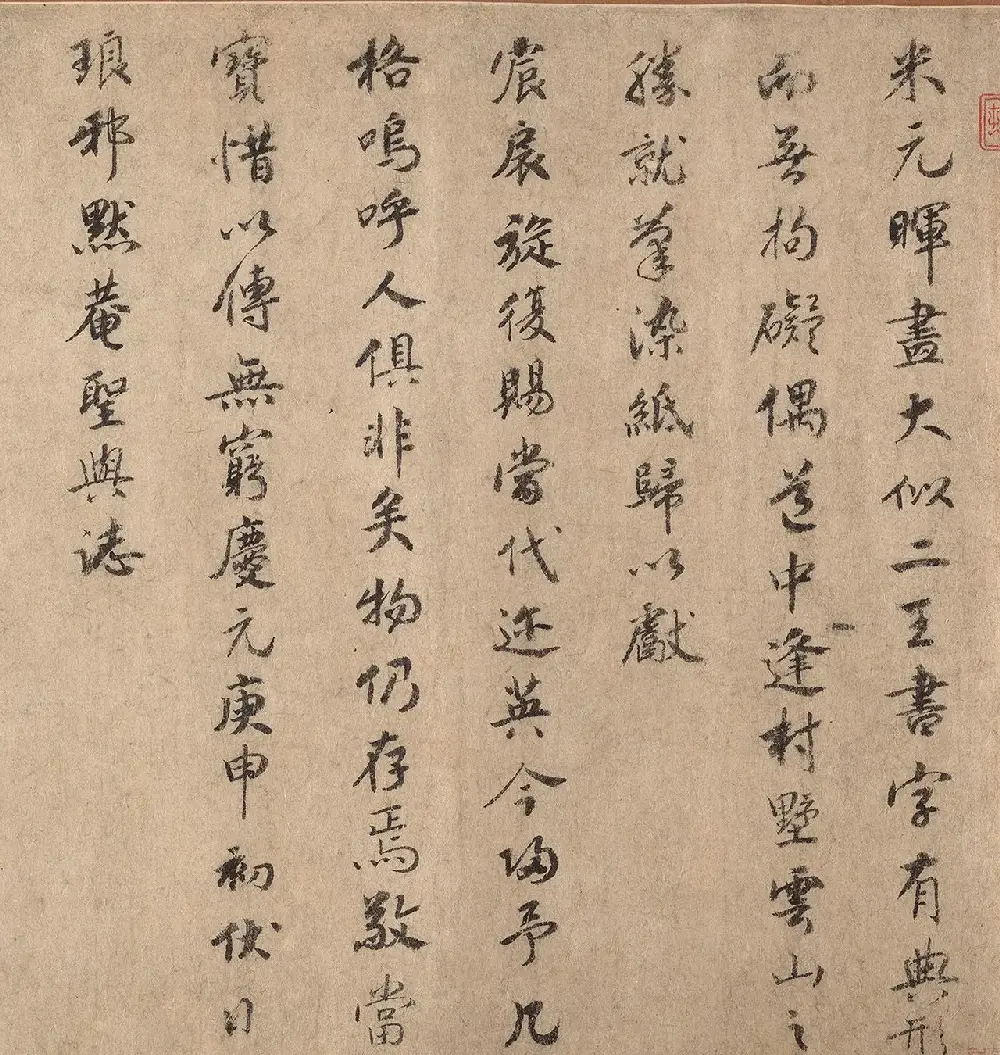 米元暉畫大似二王書字有典形
而無拘礙偶道中逢村墅雲山之
勝就筆染紙歸以獻
宸扆旋復賜當代迩英今歸予几
格嗚呼人俱非矣物仍存焉敬當
寶惜以傳無窮慶元庚申初伏日
琅邪默菴聖與誌